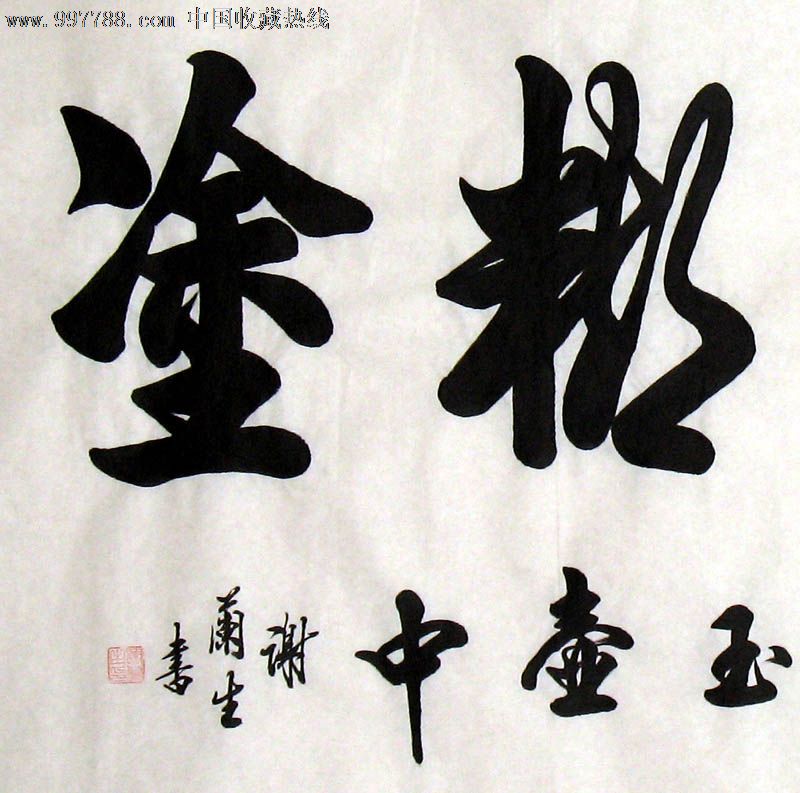 www.997788.com 中国收藏热线
糊塗
玉壺中
謝
蘭生
書